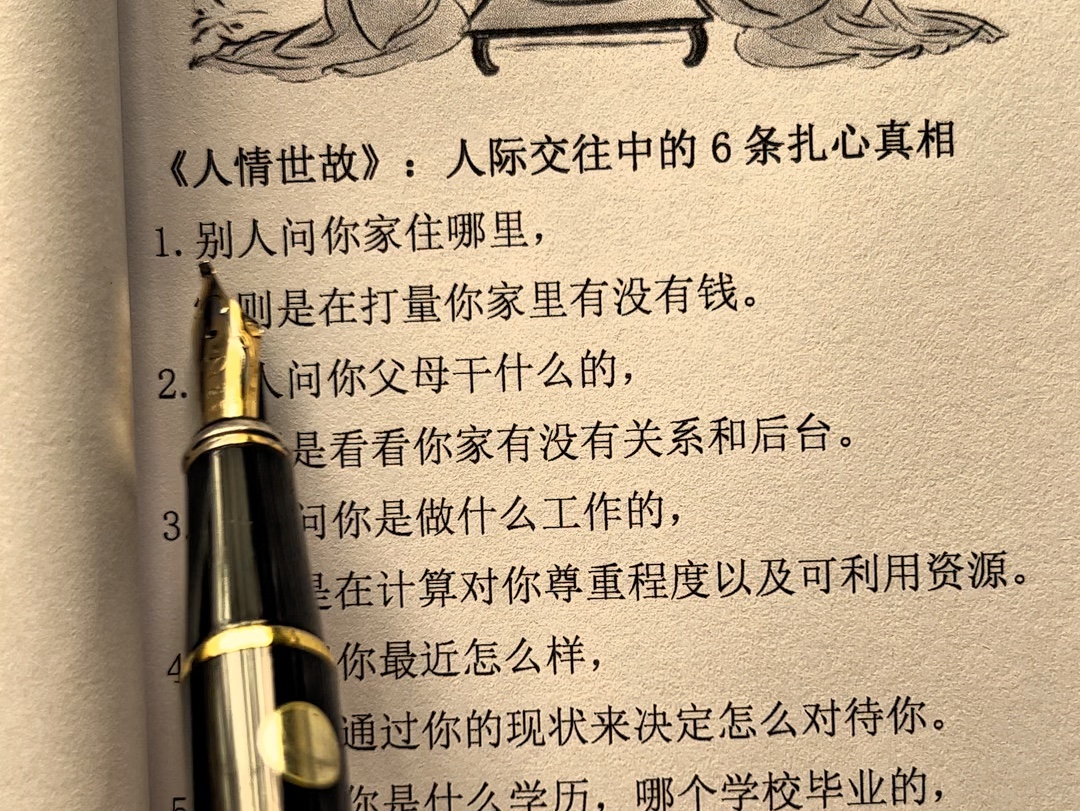 《人情世故》：人际交往中的6条扎心真相
1.别人问你家住哪里，
则是在打量你家里有没有钱。
2.人问你父母干什么的，
是看看你家有没有关系和后台。
3.问你是做什么工作的，
是在计算对你尊重程度以及可利用资源。
4你最近怎么样，
通过你的现状来决定怎么对待你。
5你是什么学历，哪个学校毕业的，